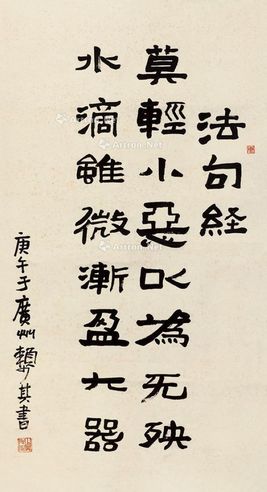 法句経
莫輕小惡以為无殃
水滴雖微漸盈大器
庚午于廣州賴少其書
Artron.Net